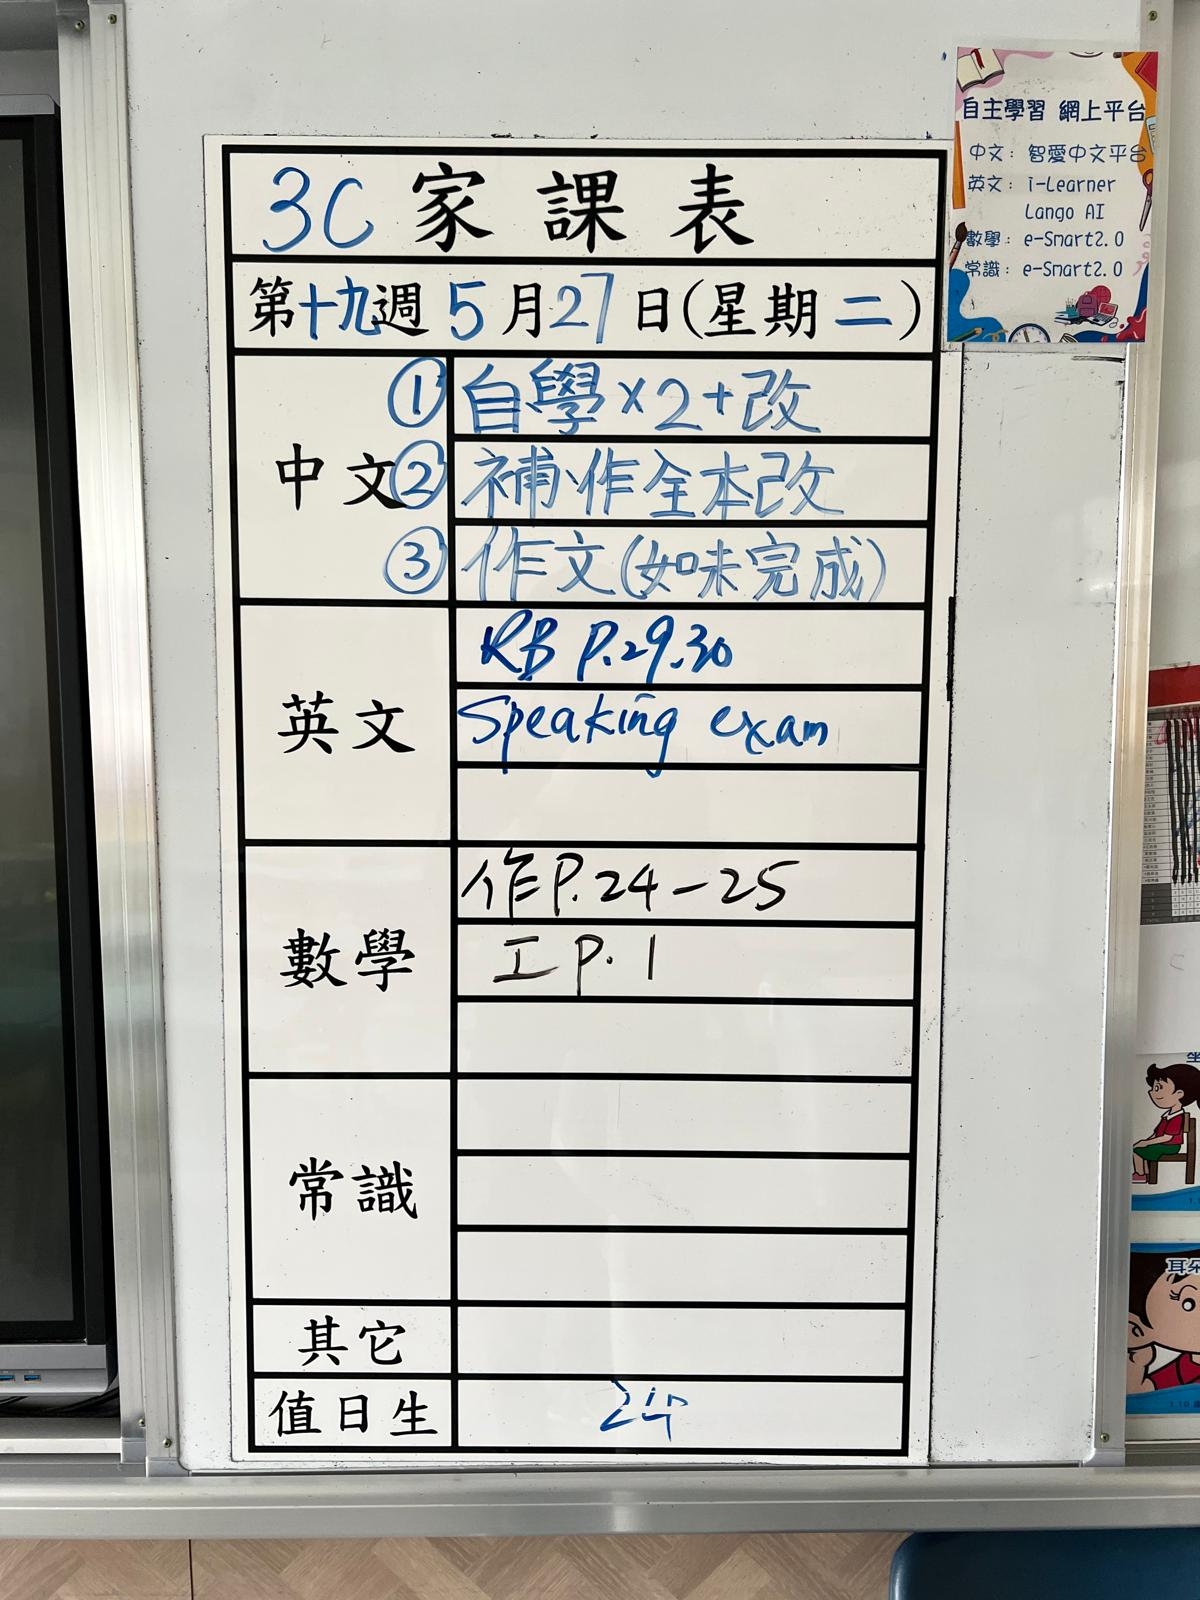 自主學習 網上平台
中文：智愛中文平台
英文：i-Learner
Lango AI
數學：e-Smart2.0
常識：e-Smart2.0
3C 家課表
第十九週 5月27日(星期二)
中文
① 自學×2+改
② 補作全本改
③ 作文(如未完成)
英文
RB P.29.30
Speaking exam
數學
作P.24-25
工 P.1
常識
其它
值日生
坐